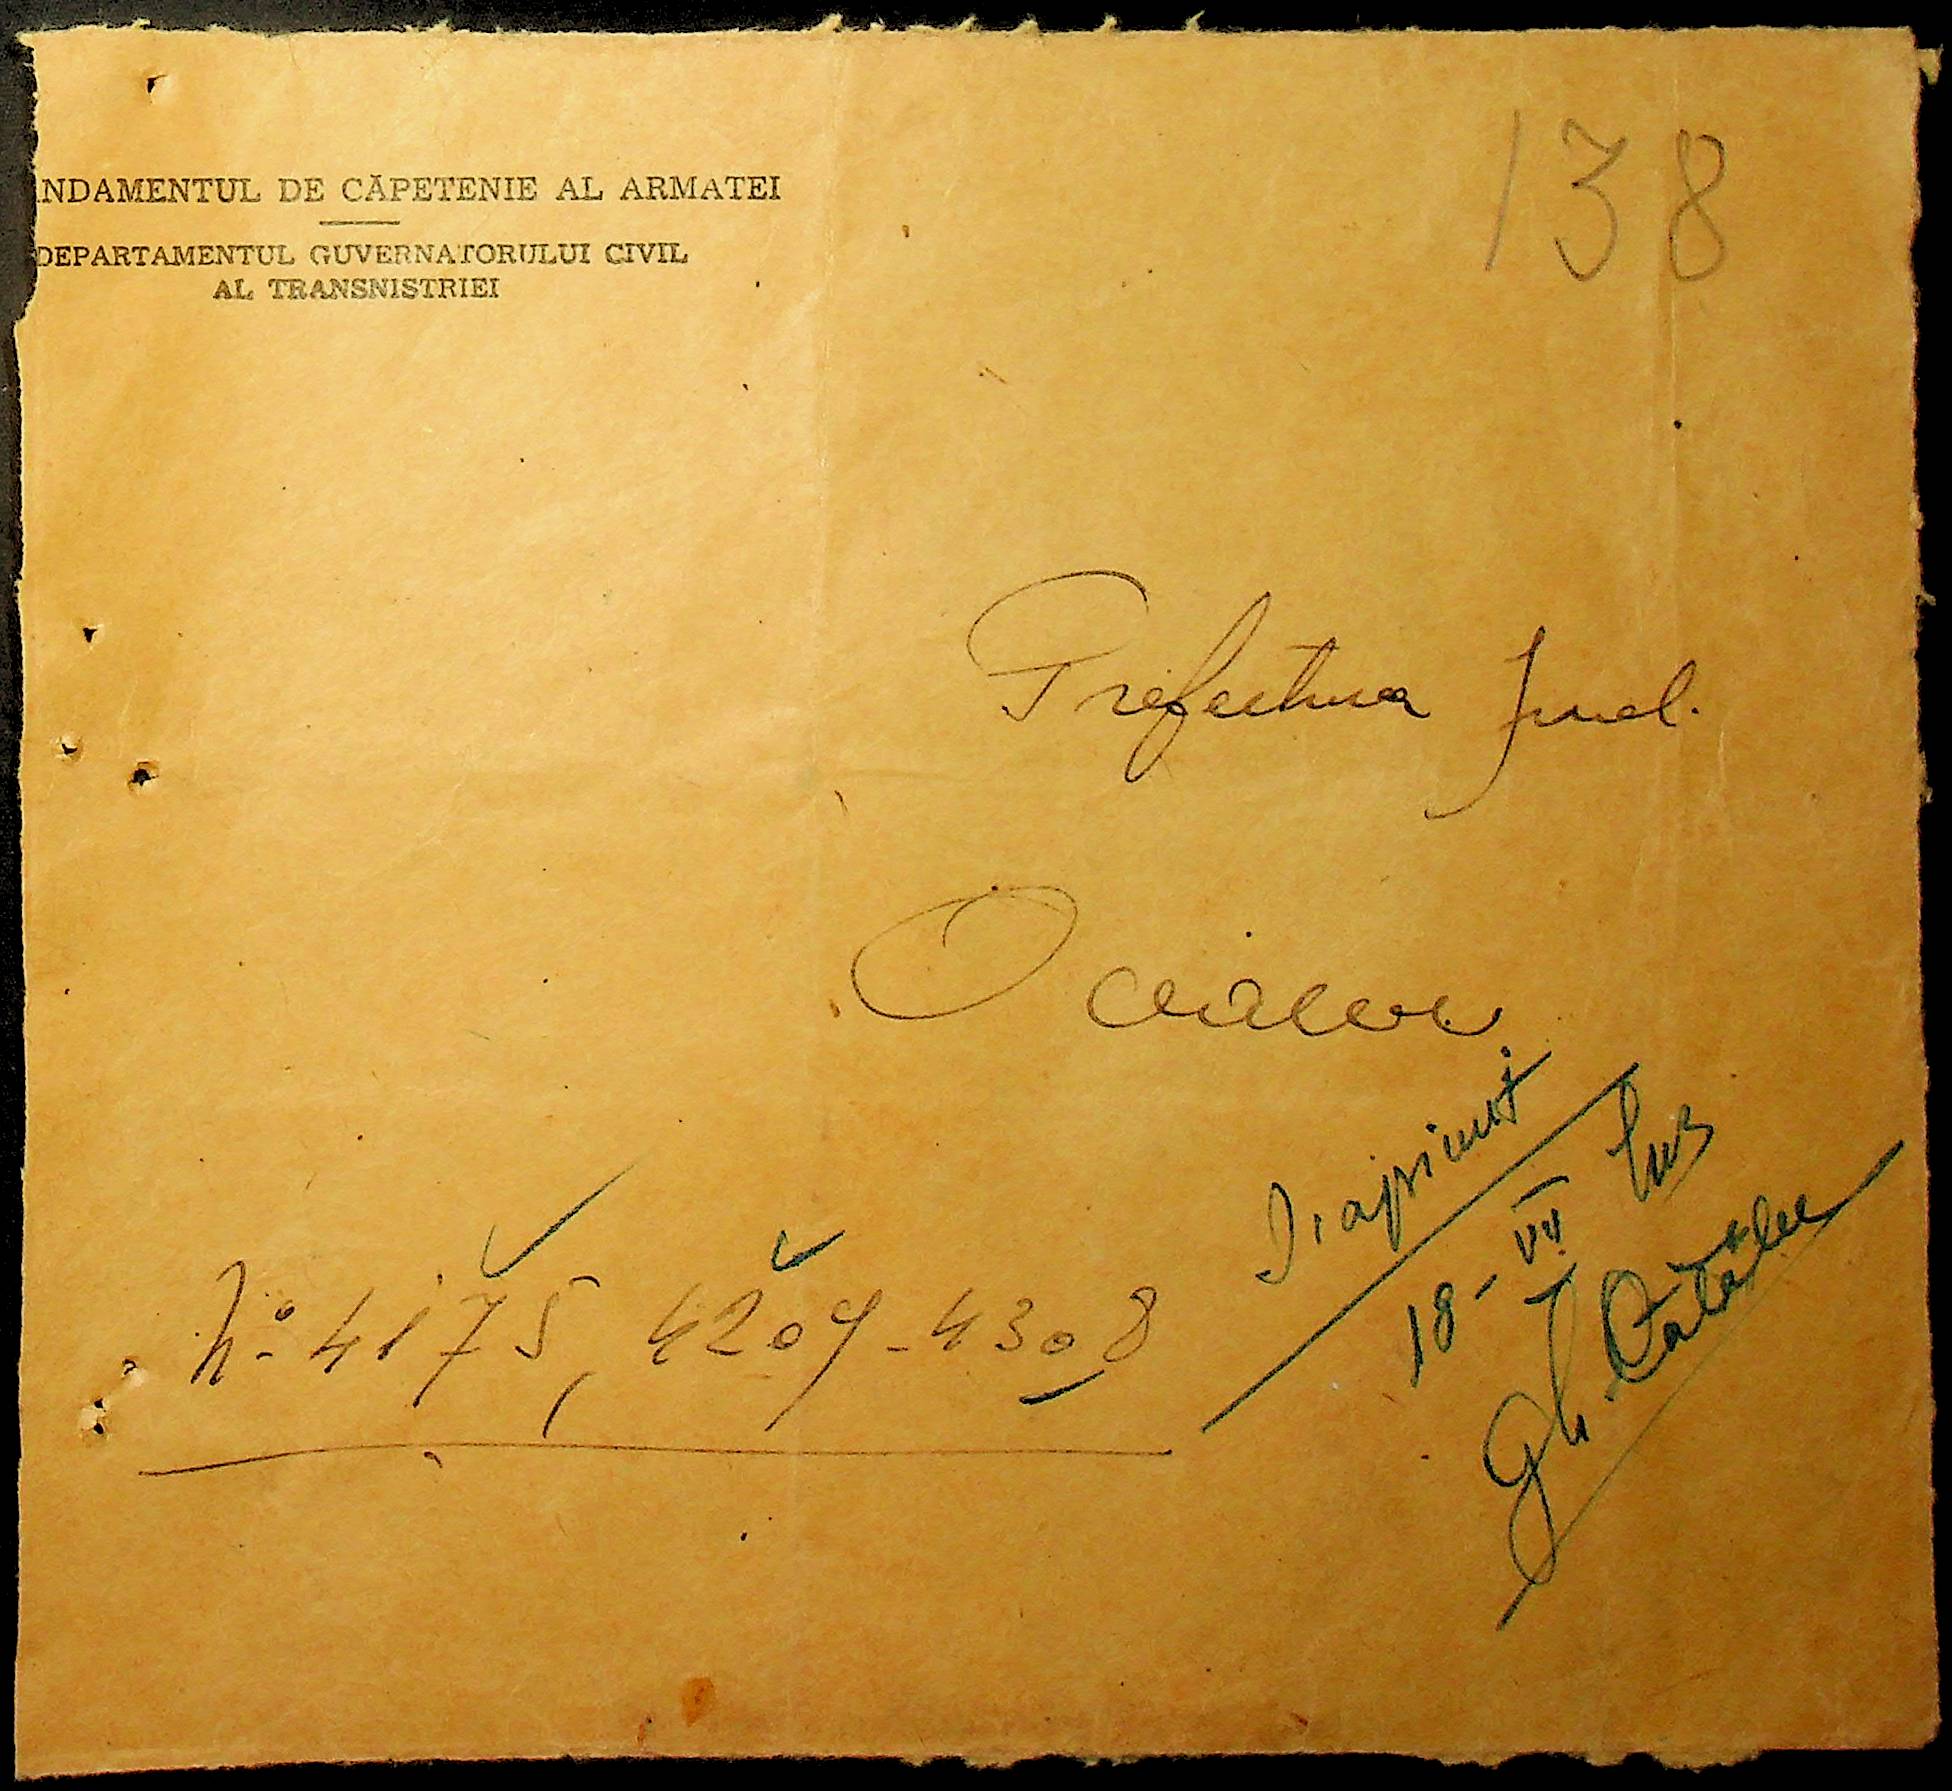 138
NDAMENTUL DE CĂPETENIE AL ARMATEI
DEPARTAMENTUL GUVERNATORULUI CIVIL
AL TRANSNISTRIEI
Prefectura Jud.
Oceacov
No. 4175, 4209-4308
18-VII
Gh.